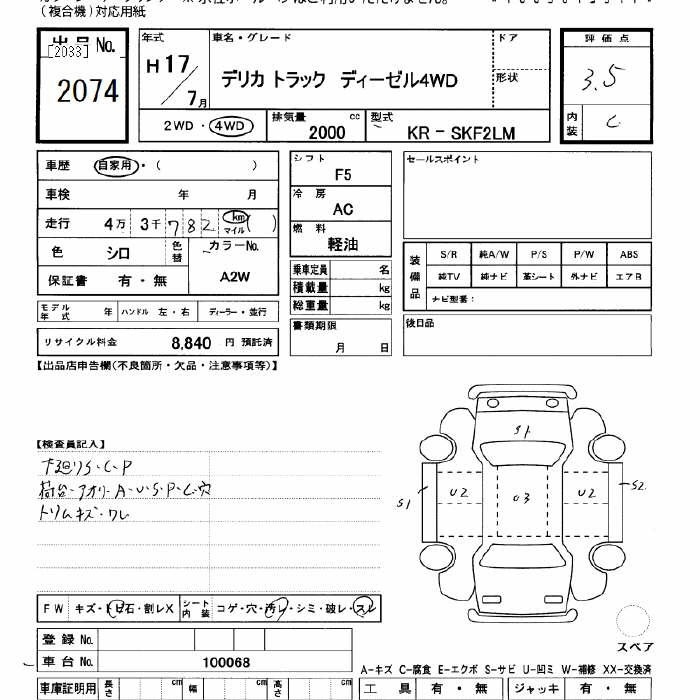 (複合機)対応用紙
出品 No.
[2033]
2074
年式
H17/7月
車名・グレード
デリカ トラック ディーゼル4WD
ドア
形状
評価点
3.5
内装
C
2WD・4WD
排気量 cc
2000
型式
KR－SKF2LM
車歴 自家用・( )
車検 年 月
走行 4万 3千 7 8 2 km マイル ( )
色 シロ 色替
カラーNo.
A2W
保証書 有・無
モデル年式 年 ハンドル 左・右 ディーラー・並行
リサイクル料金 8,840 円 預託済
シフト
F5
冷房
AC
燃料
軽油
乗車定員 名
積載量 kg
総重量 kg
書類期限
月 日
セールスポイント
装備品
S/R 純A/W P/S P/W ABS
純TV 純ナビ 革シート 外ナビ エアB
ナビ型番：
後日品
【出品店申告欄(不良箇所・欠品・注意事項等)】
【検査員記入】
下廻りS・C・P
荷台・アオリ・A・U・S・P・C・穴
トリムキズ・ワレ
S1
S1
U2
U3
U2
S2
スペア
FW キズ・トビ石・割レX
シート内装 コゲ・穴・汚レ・シミ・破レ・スレ
登録 No.
車台 No. 100068
車庫証明用 長さ cm 幅 cm 高さ cm
A-キズ C-腐食 E-エクボ S-サビ U-凹ミ W-補修 XX-交換済
工具 有・無 ジャッキ 有・無